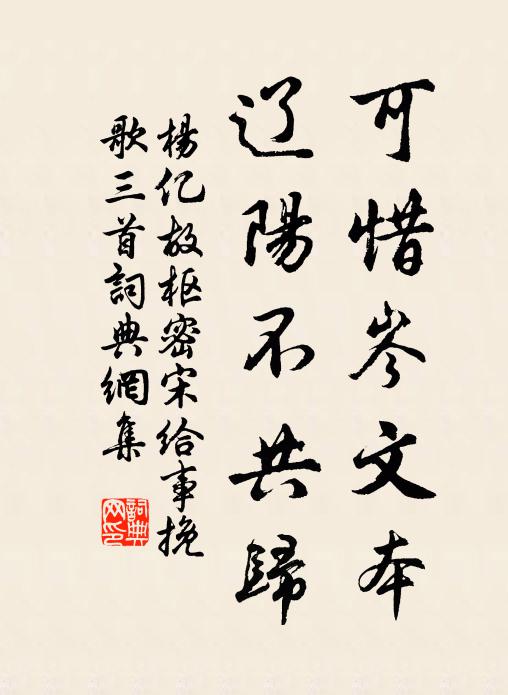 可惜岑文本
辽陽不共歸
楊亿故枢密宋给事挽
歌三首詞典網集
詞典
网印